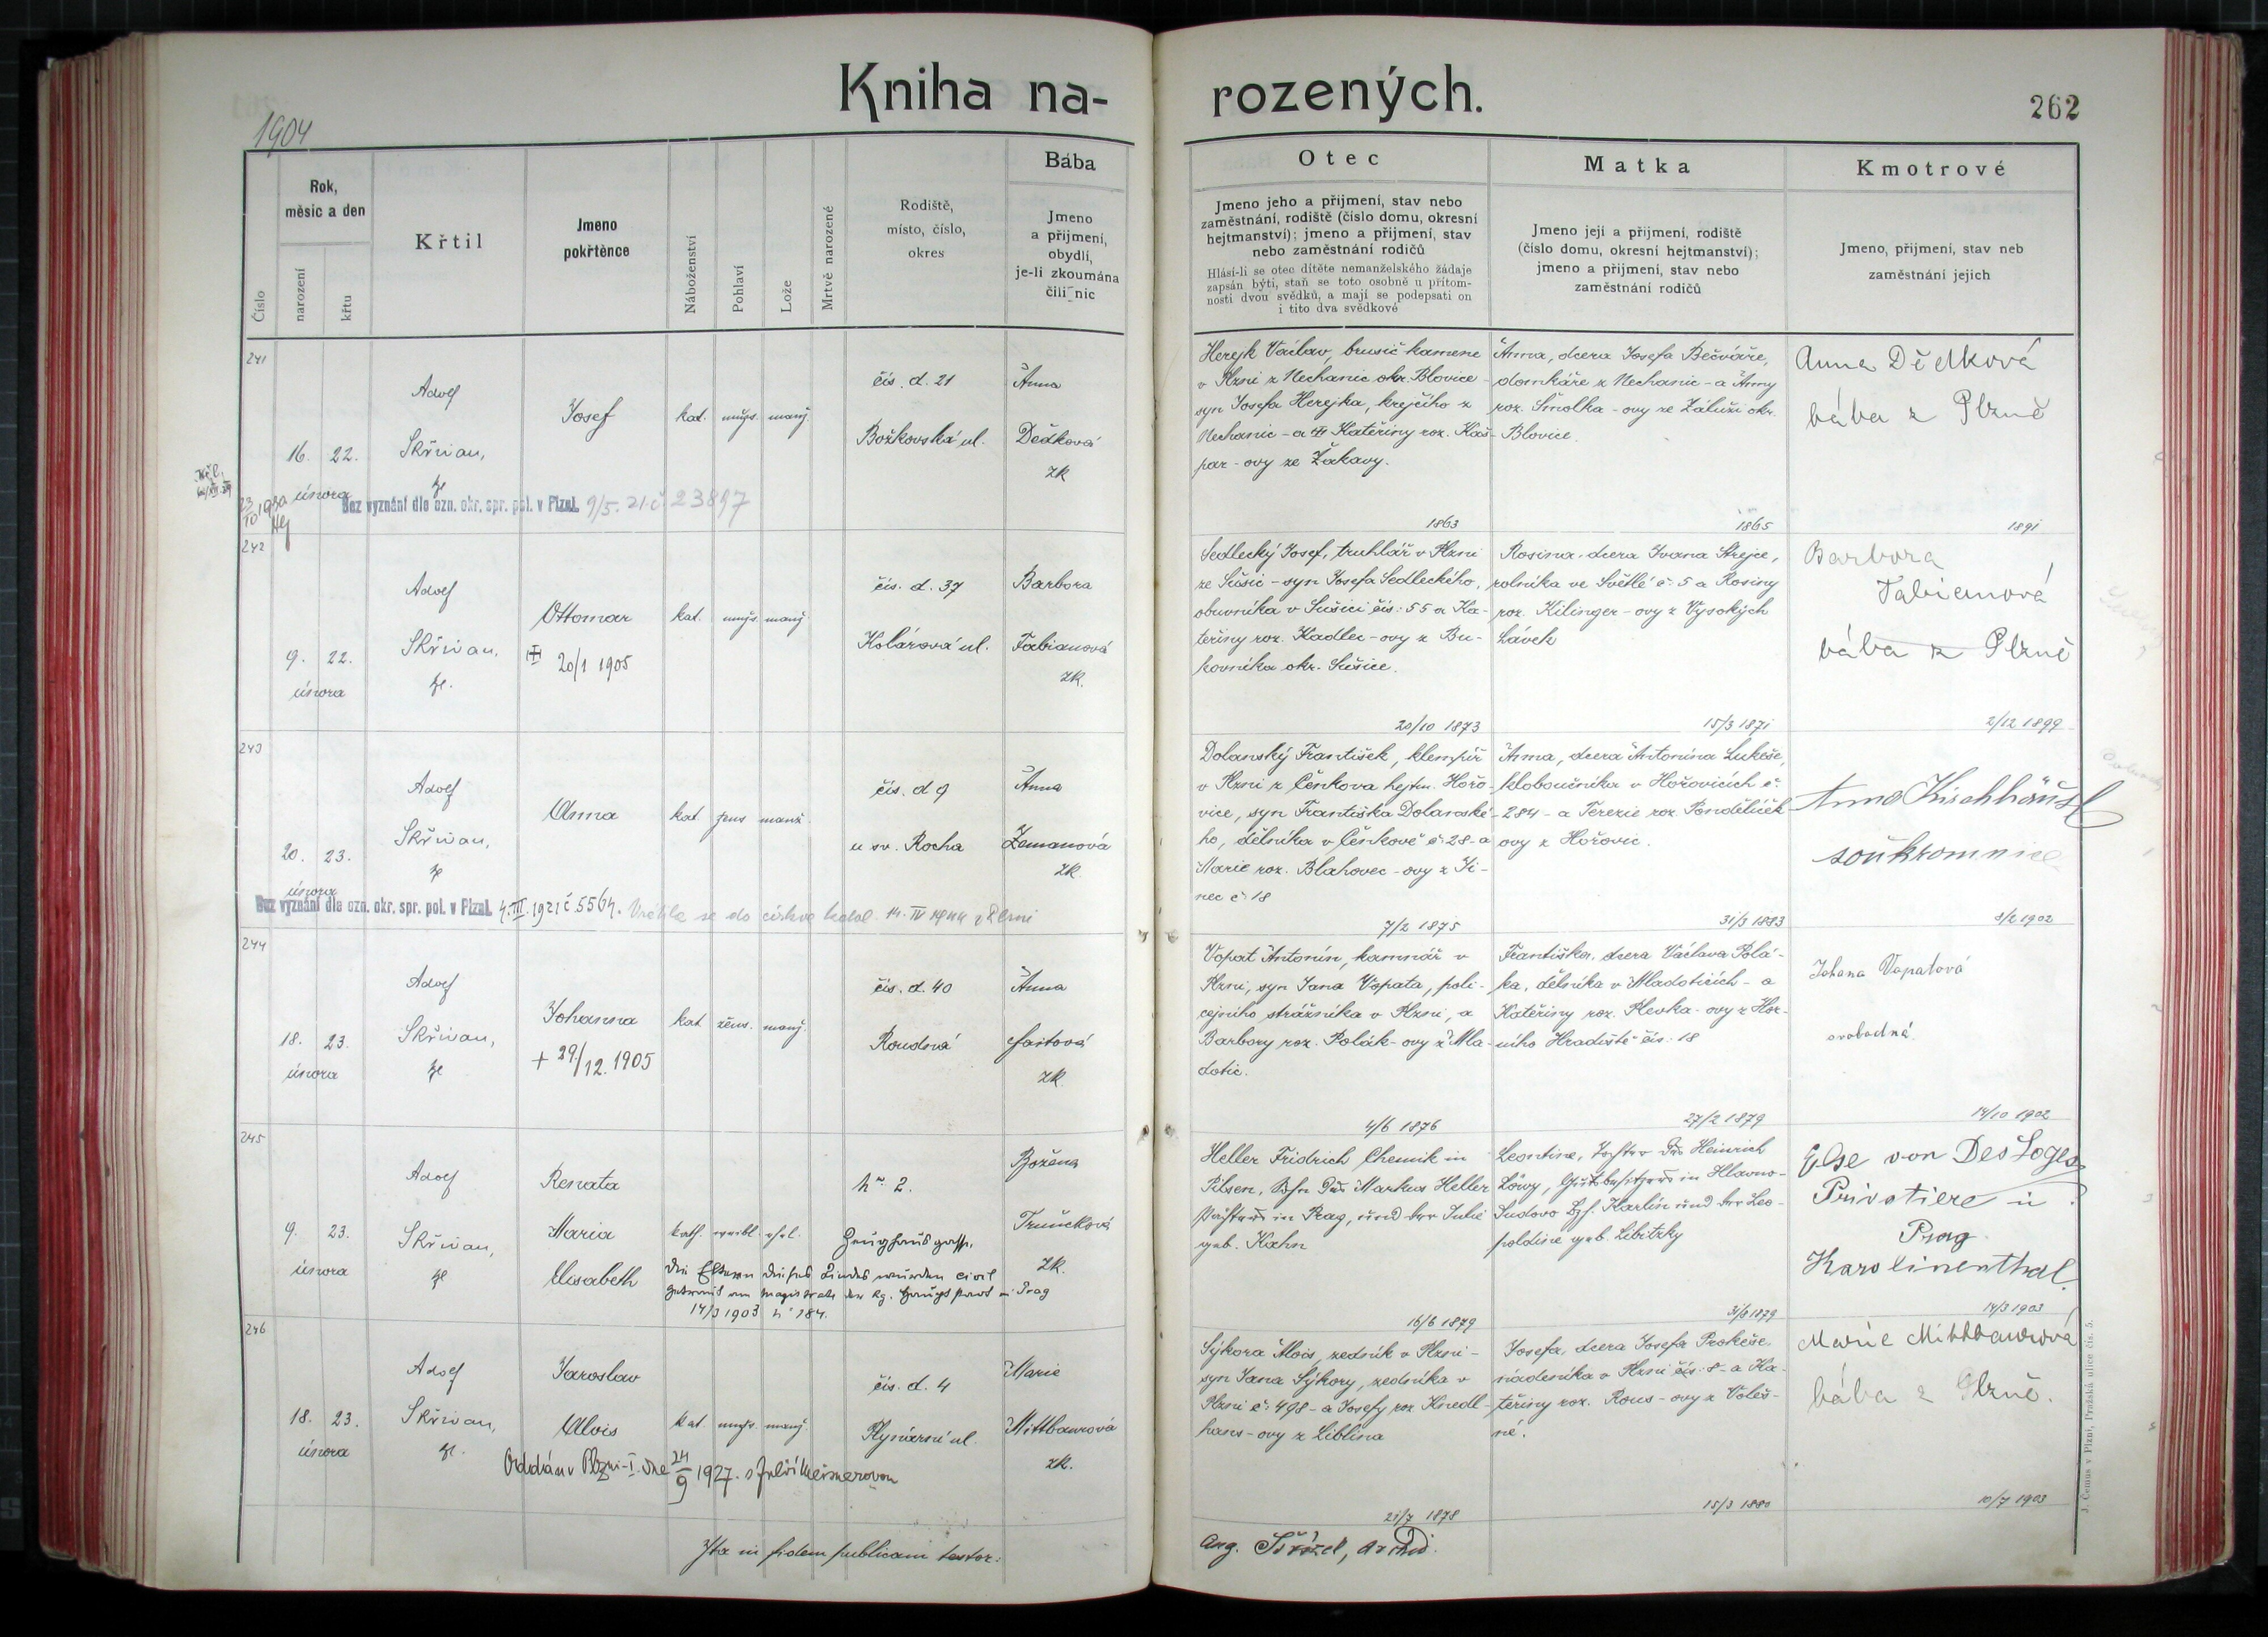 Kniha na-
rozených.
262
1904
Číslo
Rok,
měsíc a den
narození
křtu
Křtil
Jmeno
pokřtěnce
Náboženství
Pohlaví
Lože
Mrtvě narozené
Rodiště,
místo, číslo,
okres
Bába
Jmeno
a přijmení,
obydlí,
je-li zkoumána
čili nic
Otec
Jmeno jeho a přijmení, stav nebo
zaměstnání, rodiště (číslo domu, okresní
hejtmanství); jmeno a přijmení, stav
nebo zaměstnání rodičů
Hlásí-li se otec dítěte nemanželského žádaje
zapsán býti, staň se toto osobně u přítom-
nosti dvou svědků, a mají se podepsati on
i tito dva svědkové
Matka
Jmeno její a přijmení, rodiště
(číslo domu, okresní hejtmanství);
jmeno a přijmení, stav nebo
zaměstnání rodičů
Kmotrové
Jmeno, přijmení, stav neb
zaměstnání jejich
241
16. 22.
února
Adolf
Skřivan,
Josef
kat. mužs. manž.
čís. d. 21
Božkovská ul.
Anna
Dědková
zk
Bez vyznání dle ozn. okr. spr. pol. v Plzni. 9/5. 21. č. 23897
Herejk Václav, brusič kamene
v Plzni z Nechanic okr. Blovice -
syn Josefa Herejka, krejčího z
Nechanic - a Kateřiny roz. Kaš-
par - ovy ze Žákavy.
1863
Anna, dcera Josefa Bečváře,
domkáře z Nechanic - a Anny
roz. Smolka - ovy ze Záluží okr.
Blovice.
1865
Anna Dědková
bába z Plzně
1891
242
9. 22.
února
Adolf
Skřivan,
Ottomar
20/1 1905
kat. mužs. manž.
čís. d. 37
Kolárova ul.
Barbora
Fabianová
zk.
Sedlecký Josef, truhlář v Plzni
ze Sušic - syn Josefa Sedleckého,
obuvníka v Sušici čís: 55 a Ka-
teřiny roz. Kadlec - ovy z Bu-
kovníka okr. Sušice.
20/10 1873
Rosina, dcera Ivana Strejce,
rolníka ve Světlé č. 5 a Rosiny
roz. Kilinger - ovy z Vysokých
Lávek
15/3 1871
Barbora
Fabianová
bába z Plzně
2/12 1899
243
20. 23.
února
Adolf
Skřivan,
Anna
kat žens manž.
čís. d 9
u sv. Rocha
Anna
Zemanová
zk.
Bez vyznání dle ozn. okr. spr. pol. v Plzni. 4. III. 1921 č 5564. Vrátila se do církve katol. 14. IV 1944 v Plzni
Dolanský František, klempíř
v Plzni z Čenkova hejtm. Hořo-
vice, syn Františka Dolanské-
ho, dělníka v Čenkově č. 28 - a
Marie roz. Blahovec - ovy z Ji-
nec č 18
7/2 1875
Anna, dcera Antonína Lukeše,
kloboučníka v Hořovicích č.
284 - a Terezie roz. Pondělíček
ovy z Hořovic.
31/3 1883
Anna Kirchhäusl
soukromnice
8/2 1902
244
18. 23.
února
Adolf
Skřivan,
Johanna
+ 29./12. 1905
kat žens. manž.
čís. d. 40
Roudná
Anna
Faitová
zk
Vopat Antonín, kamnář v
Plzni, syn Jana Vopata, poli-
cejního strážníka v Plzni, a
Barbory roz. Polák - ovy z Mla-
dotic.
4/6 1876
Františka, dcera Václava Polá-
ka, dělníka v Mladoticích - a
Kateřiny roz. Plevka - ovy z Hor-
ního Hradiště čís. 18
27/2 1879
Johana Vopatová
svobodná
14/10 1902
245
9. 23.
února
Adolf
Skřivan,
Renata
Maria
Elisabeth
kath. weibl. ehel.
No. 2.
Zeughausgasse.
Božena
zk.
Die Eltern dieses Kindes wurden civil
getraut am Magistrate der kg. Hauptstadt in Prag
14/3 1903 No 184.
Heller Fridrich Chemik in
Pilsen, Sohn des Markus Heller
in Prag, und der Julie
geb. Kahn
16/6 1879
Leontine, Tochter des Heinrich
Löwy, Gutsbesitzers in Hlavno-
Sudovo Bzh. Karlín und der Leo-
poldine geb. Libitzky
31/8 1879
Else von Des Loges
Privatiere in
Prag
Karolinenthal.
14/3 1903
246
18. 23.
února
Adolf
Skřivan,
Jaroslav
Alois
kat mužs. manž.
čís. d. 4
Plynární ul.
Marie
Mittbauerová
zk.
Oddán v Plzni-I. dne 24/9 1927. s Julií Meisnerovou
Sýkora Alois, zedník v Plzni -
syn Jana Sýkory, zedníka v
Plzni č: 498 - a Josefy roz Knedl-
hans - ovy z Liblína
21/7 1878
Josefa, dcera Josefa Prokeše,
nádeníka v Plzni čís: 8 - a Ka-
teřiny roz. Rous - ovy z Voleš-
né.
15/3 1880
Marie Mittbauerová
bába z Plzně.
10/7 1903
Ita in fidem publicam testor:
Aug. Švrzel, archid.
J. Čemus v Plzni, Pražská ulice čís. 5.